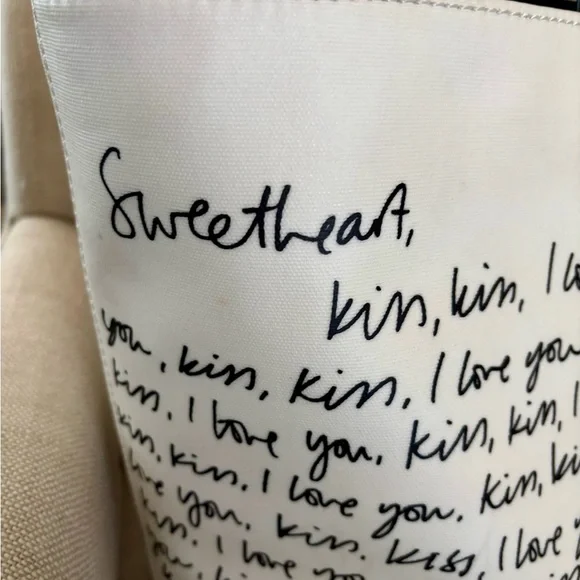 Sweetheart,
kiss, kiss, I lo
you, kiss, kiss, I love you
kiss, I love you, kiss, kiss, I
kiss, kiss, I love you, kiss, ki
love you, kiss, kiss, I love y
kiss, I love you
you, ki